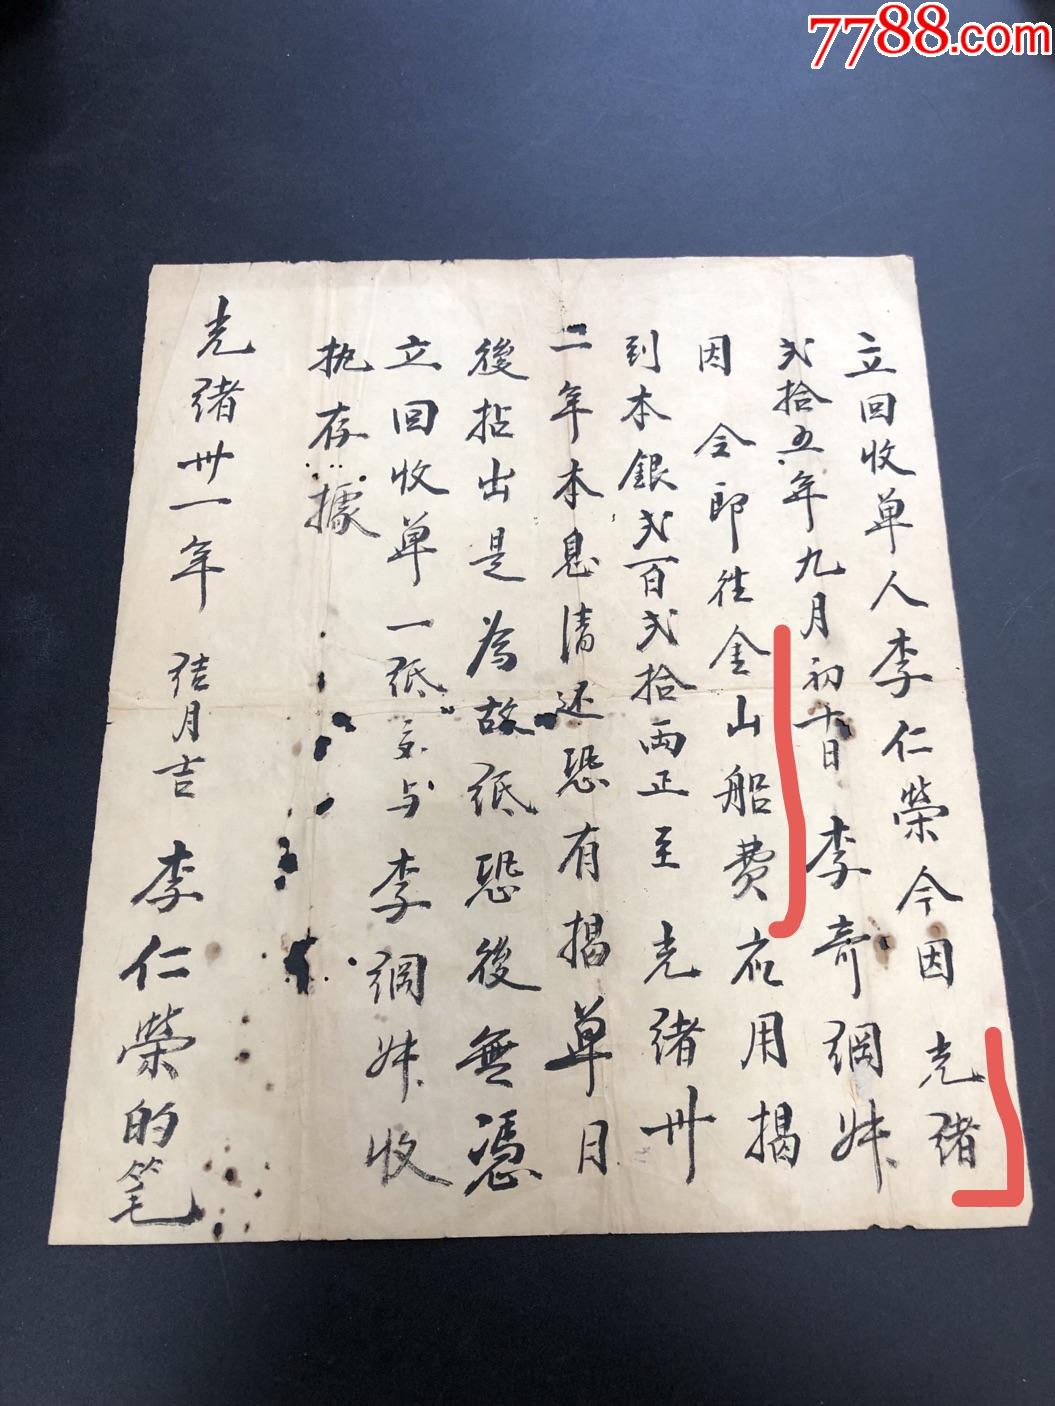 7788.com
立回收单人李仁榮今因 光緒
弍拾五年九月初十日李奇綢妹
因 令郎往金山船費應用揭
到本銀弍百弍拾両正至 光緒卅
二年本息清还恐有揭单日
後拈出是為故纸恐後無憑
立回收单一纸交与李綢妹收
执存據
光緒卅一年 结月吉 李仁榮的笔